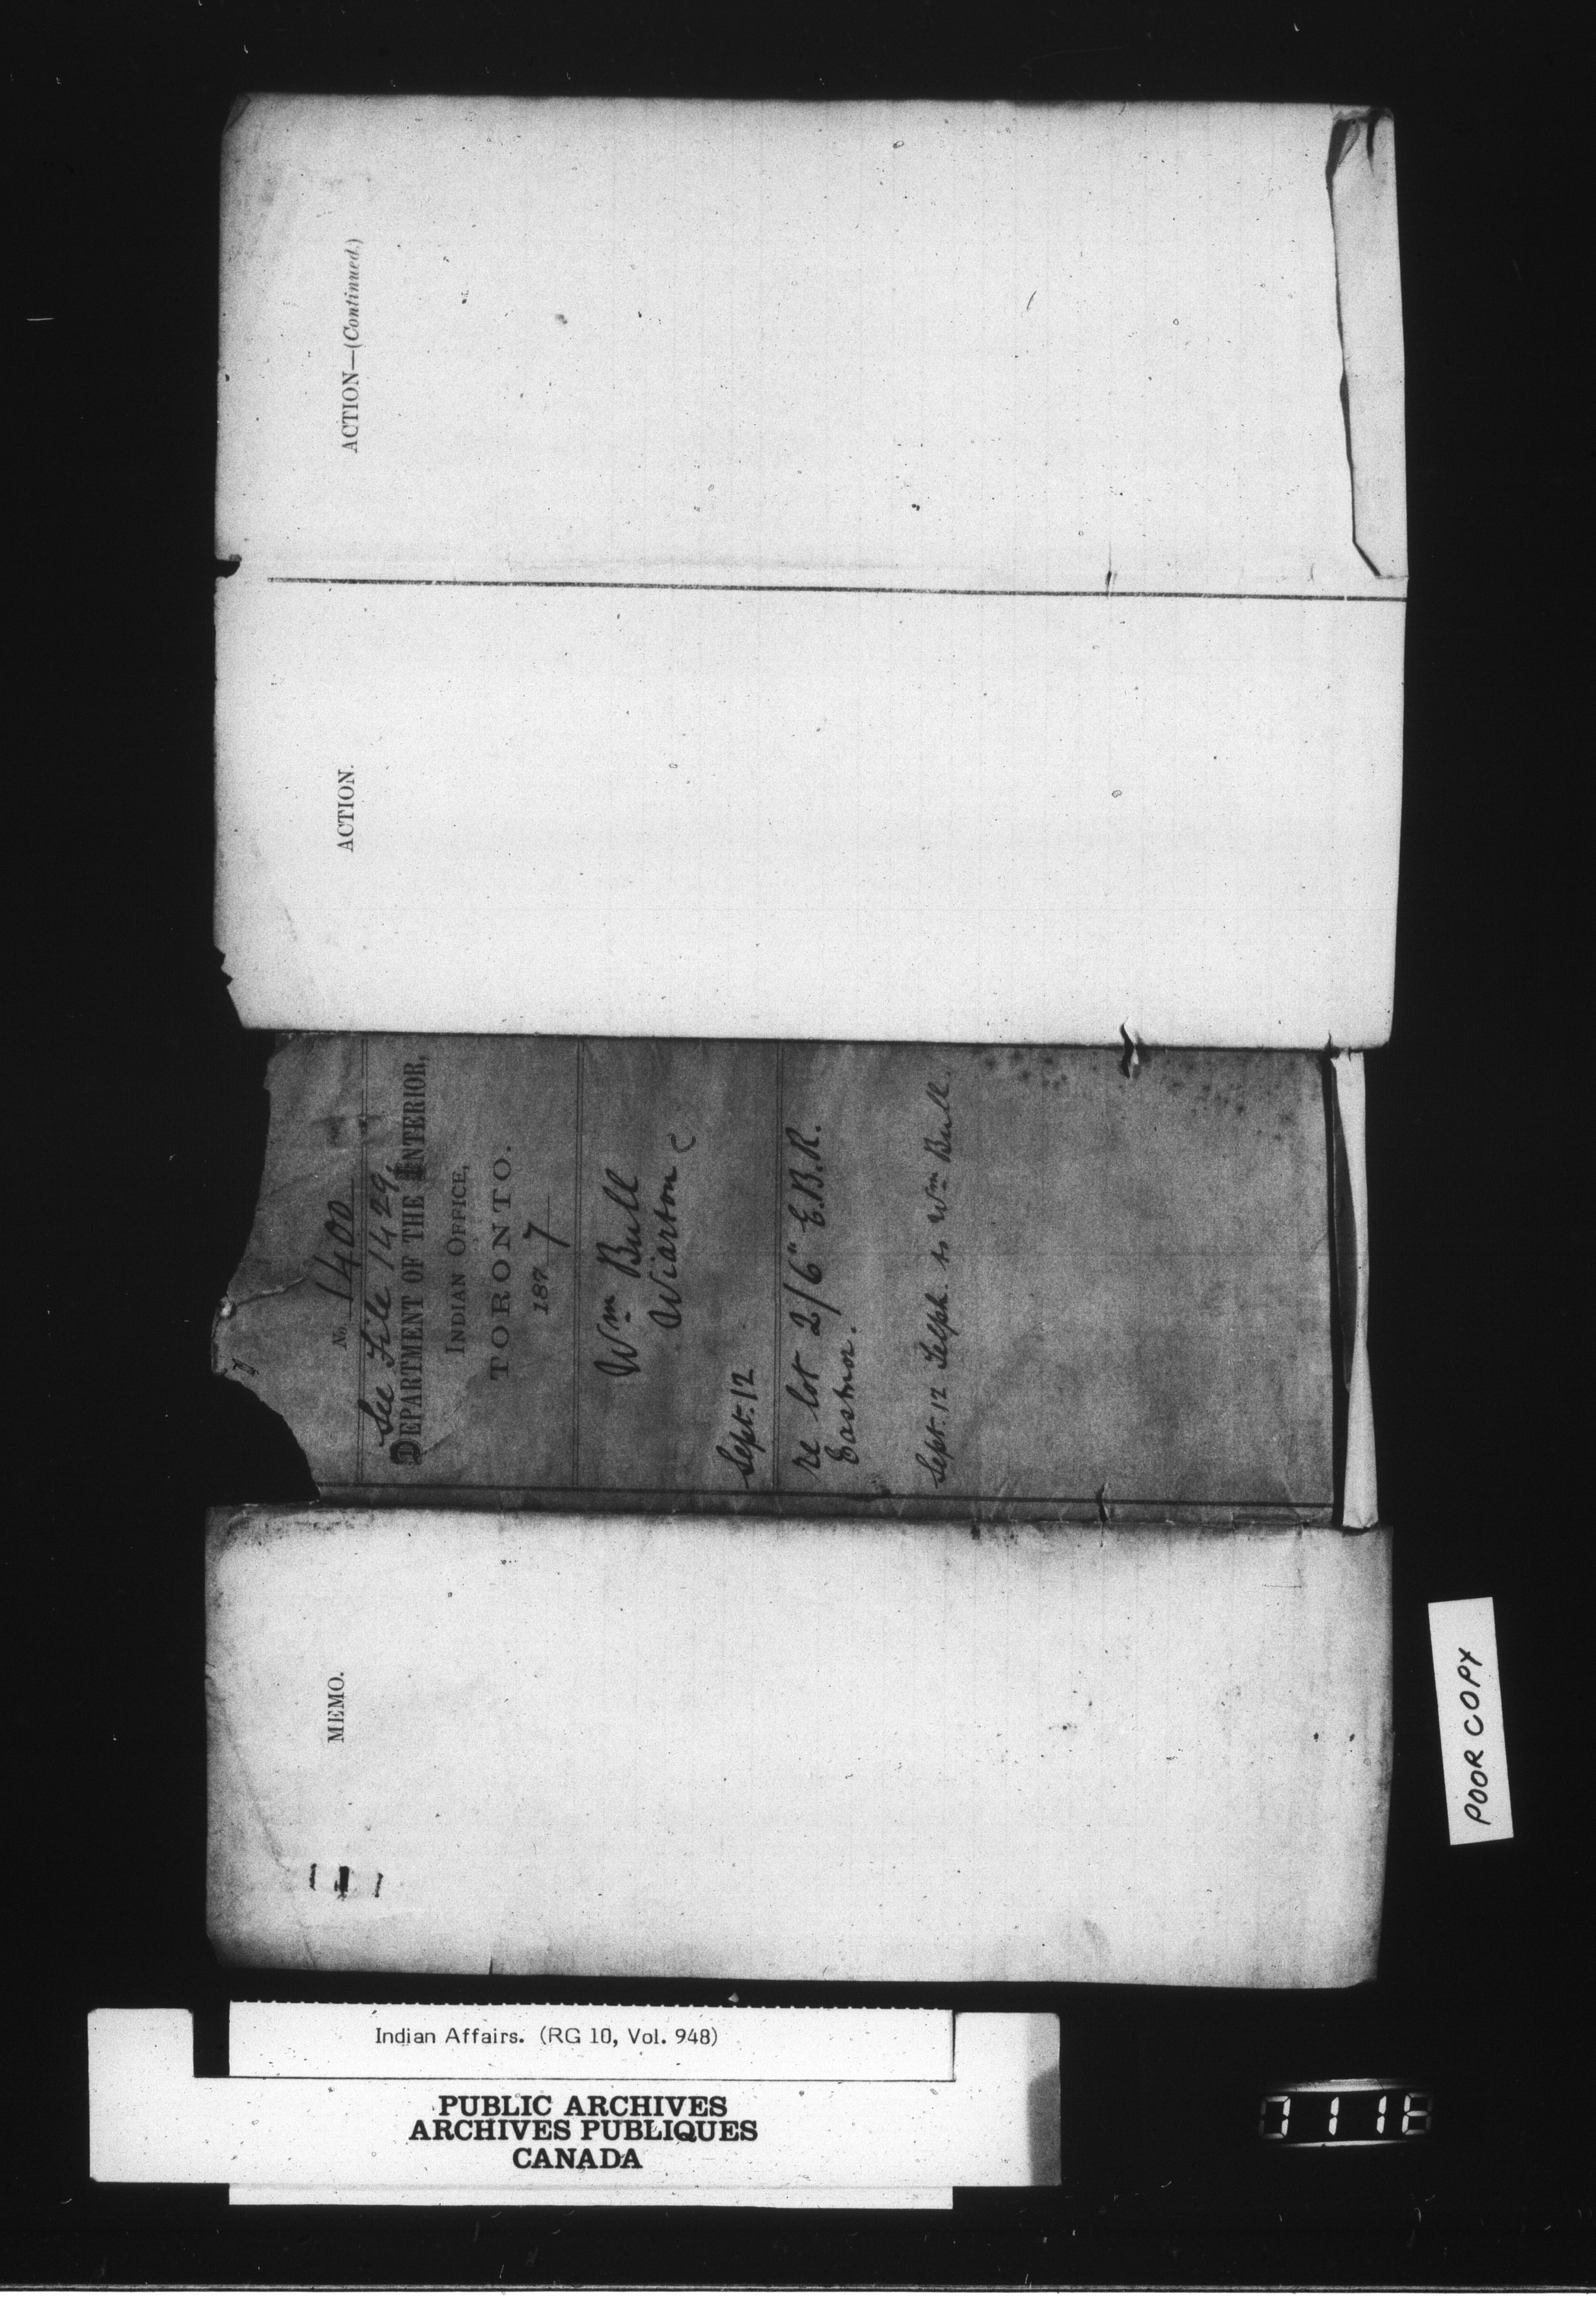 ACTION—(Continued.)
ACTION.
No. 1400
See File 1429
DEPARTMENT OF THE INTERIOR,
INDIAN OFFICE,
TORONTO.
1877
Wm Bull
Wiarton
Sept. 12
re lot 2/6" E.B.R.
Eastnor.
Sept. 12 Telph. to Wm Bull.
MEMO.
POOR COPY
Indian Affairs. (RG 10, Vol. 948)
PUBLIC ARCHIVES
ARCHIVES PUBLIQUES
CANADA